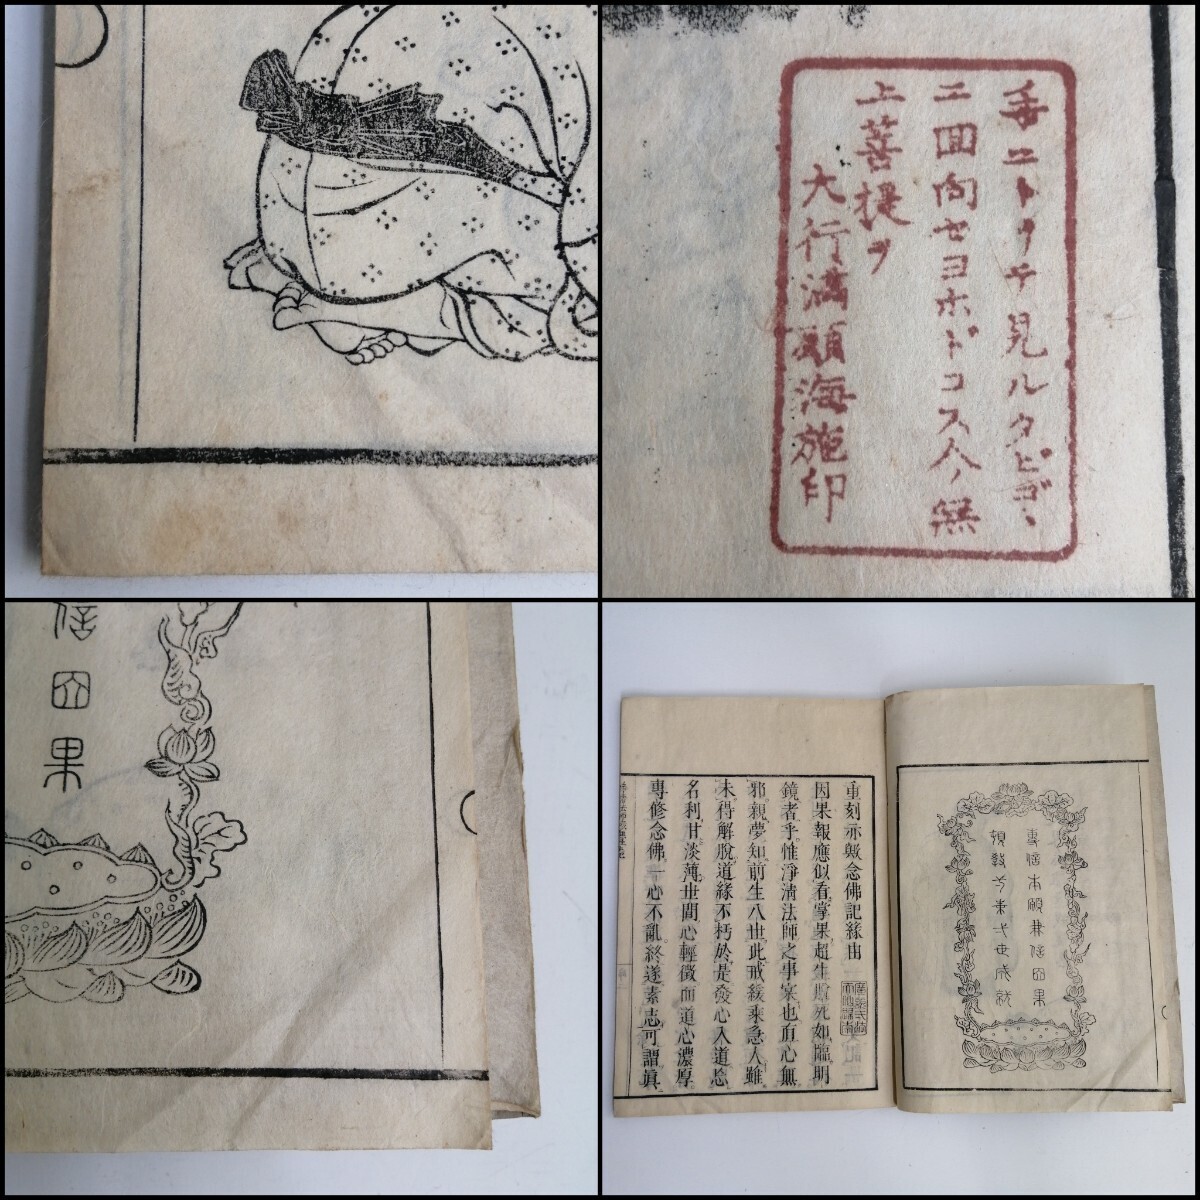 手ニトリテ見ルタビゴヽ
ニ回向セヨホドコス人ノ無
上菩提ヲ
大行満願海施印
信因果
重刻示報念佛記縁由
因果報應似看掌果超生脱死如臨明
鏡者乎惟淨清法師之事寀也直心無
邪親夢知前生八世此戒緩乘急人雖
未得解脱道縁不朽於是發心入道恡
名利甘淡薄世間心輕微而道心濃厚
專修念佛一心不亂終遂素志可謂眞
專信本願兼信因果